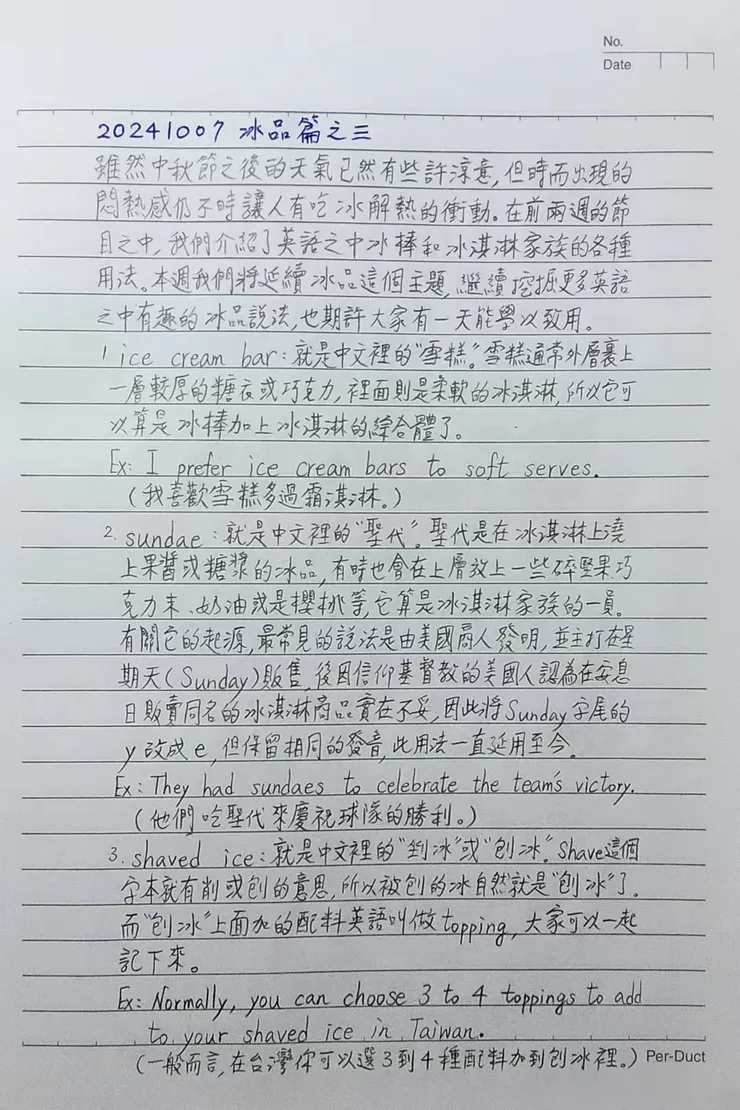 No.
Date
20241007 冰品篇之三
雖然中秋節之後的天氣已然有些許淳意,但時而出現的
悶熱感仍不時讓人有吃冰解熱的衝動。在前兩週的節
目之中,我們介紹了英語之中冰棒和冰淇淋家族的各種
用法。本週我們將延續冰品這個主題,繼續挖掘更多英語
之中有趣的冰品說法,也期許大家有一天能學以致用。
1 ice cream bar:就是中文裡的"雪糕"。雪糕通常外層裹上
一層較厚的糖衣或巧克力,裡面則是柔軟的冰淇淋,所以它可
以算是冰棒加上冰淇淋的綜合體了。
Ex: I prefer ice cream bars to soft serves.
(我喜歡雪糕多過霜淇淋。)
2. sundae:就是中文裡的"聖代"。聖代是在冰淇淋上澆
上果醬或糖漿的冰品,有時也會在上層放上一些碎堅果、巧
克力末、奶油或是櫻桃等,它算是冰淇淋家族的一員。
有關它的起源,最常見的說法是由美國商人發明,並主打在星
期天(Sunday)販售,後因信仰基督教的美國人認為在安息
日販賣同名的冰淇淋商品實在不妥,因此將Sunday字尾的
y 改成 e,但保留相同的發音,此用法一直延用至今。
Ex: They had sundaes to celebrate the team's victory.
(他們吃聖代來慶祝球隊的勝利。)
3. shaved ice:就是中文裡的"剉冰"或"刨冰"。Shave這個
字本就有削或刨的意思,所以被刨的冰自然就是"刨冰"了。
而"刨冰"上面加的配料英語叫做topping,大家可以一起
記下來。
Ex: Normally, you can choose 3 to 4 toppings to add
to your shaved ice in Taiwan.
(一般而言,在台灣你可以選3到4種配料加到刨冰裡。) Per-Duct